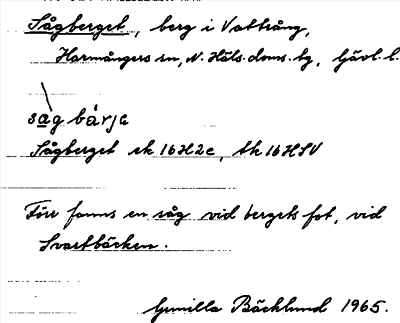 Sågberget, berg i Vattrång,
Harmångers sn, N. Häls. doms. tg, Gävl. l.
såg bärje
Sågberget ek 16H2e, tk 16HSV
Förr fanns en såg vid bergets fot, vid
Svartbäcken.
Gunilla Bäcklund 1965.